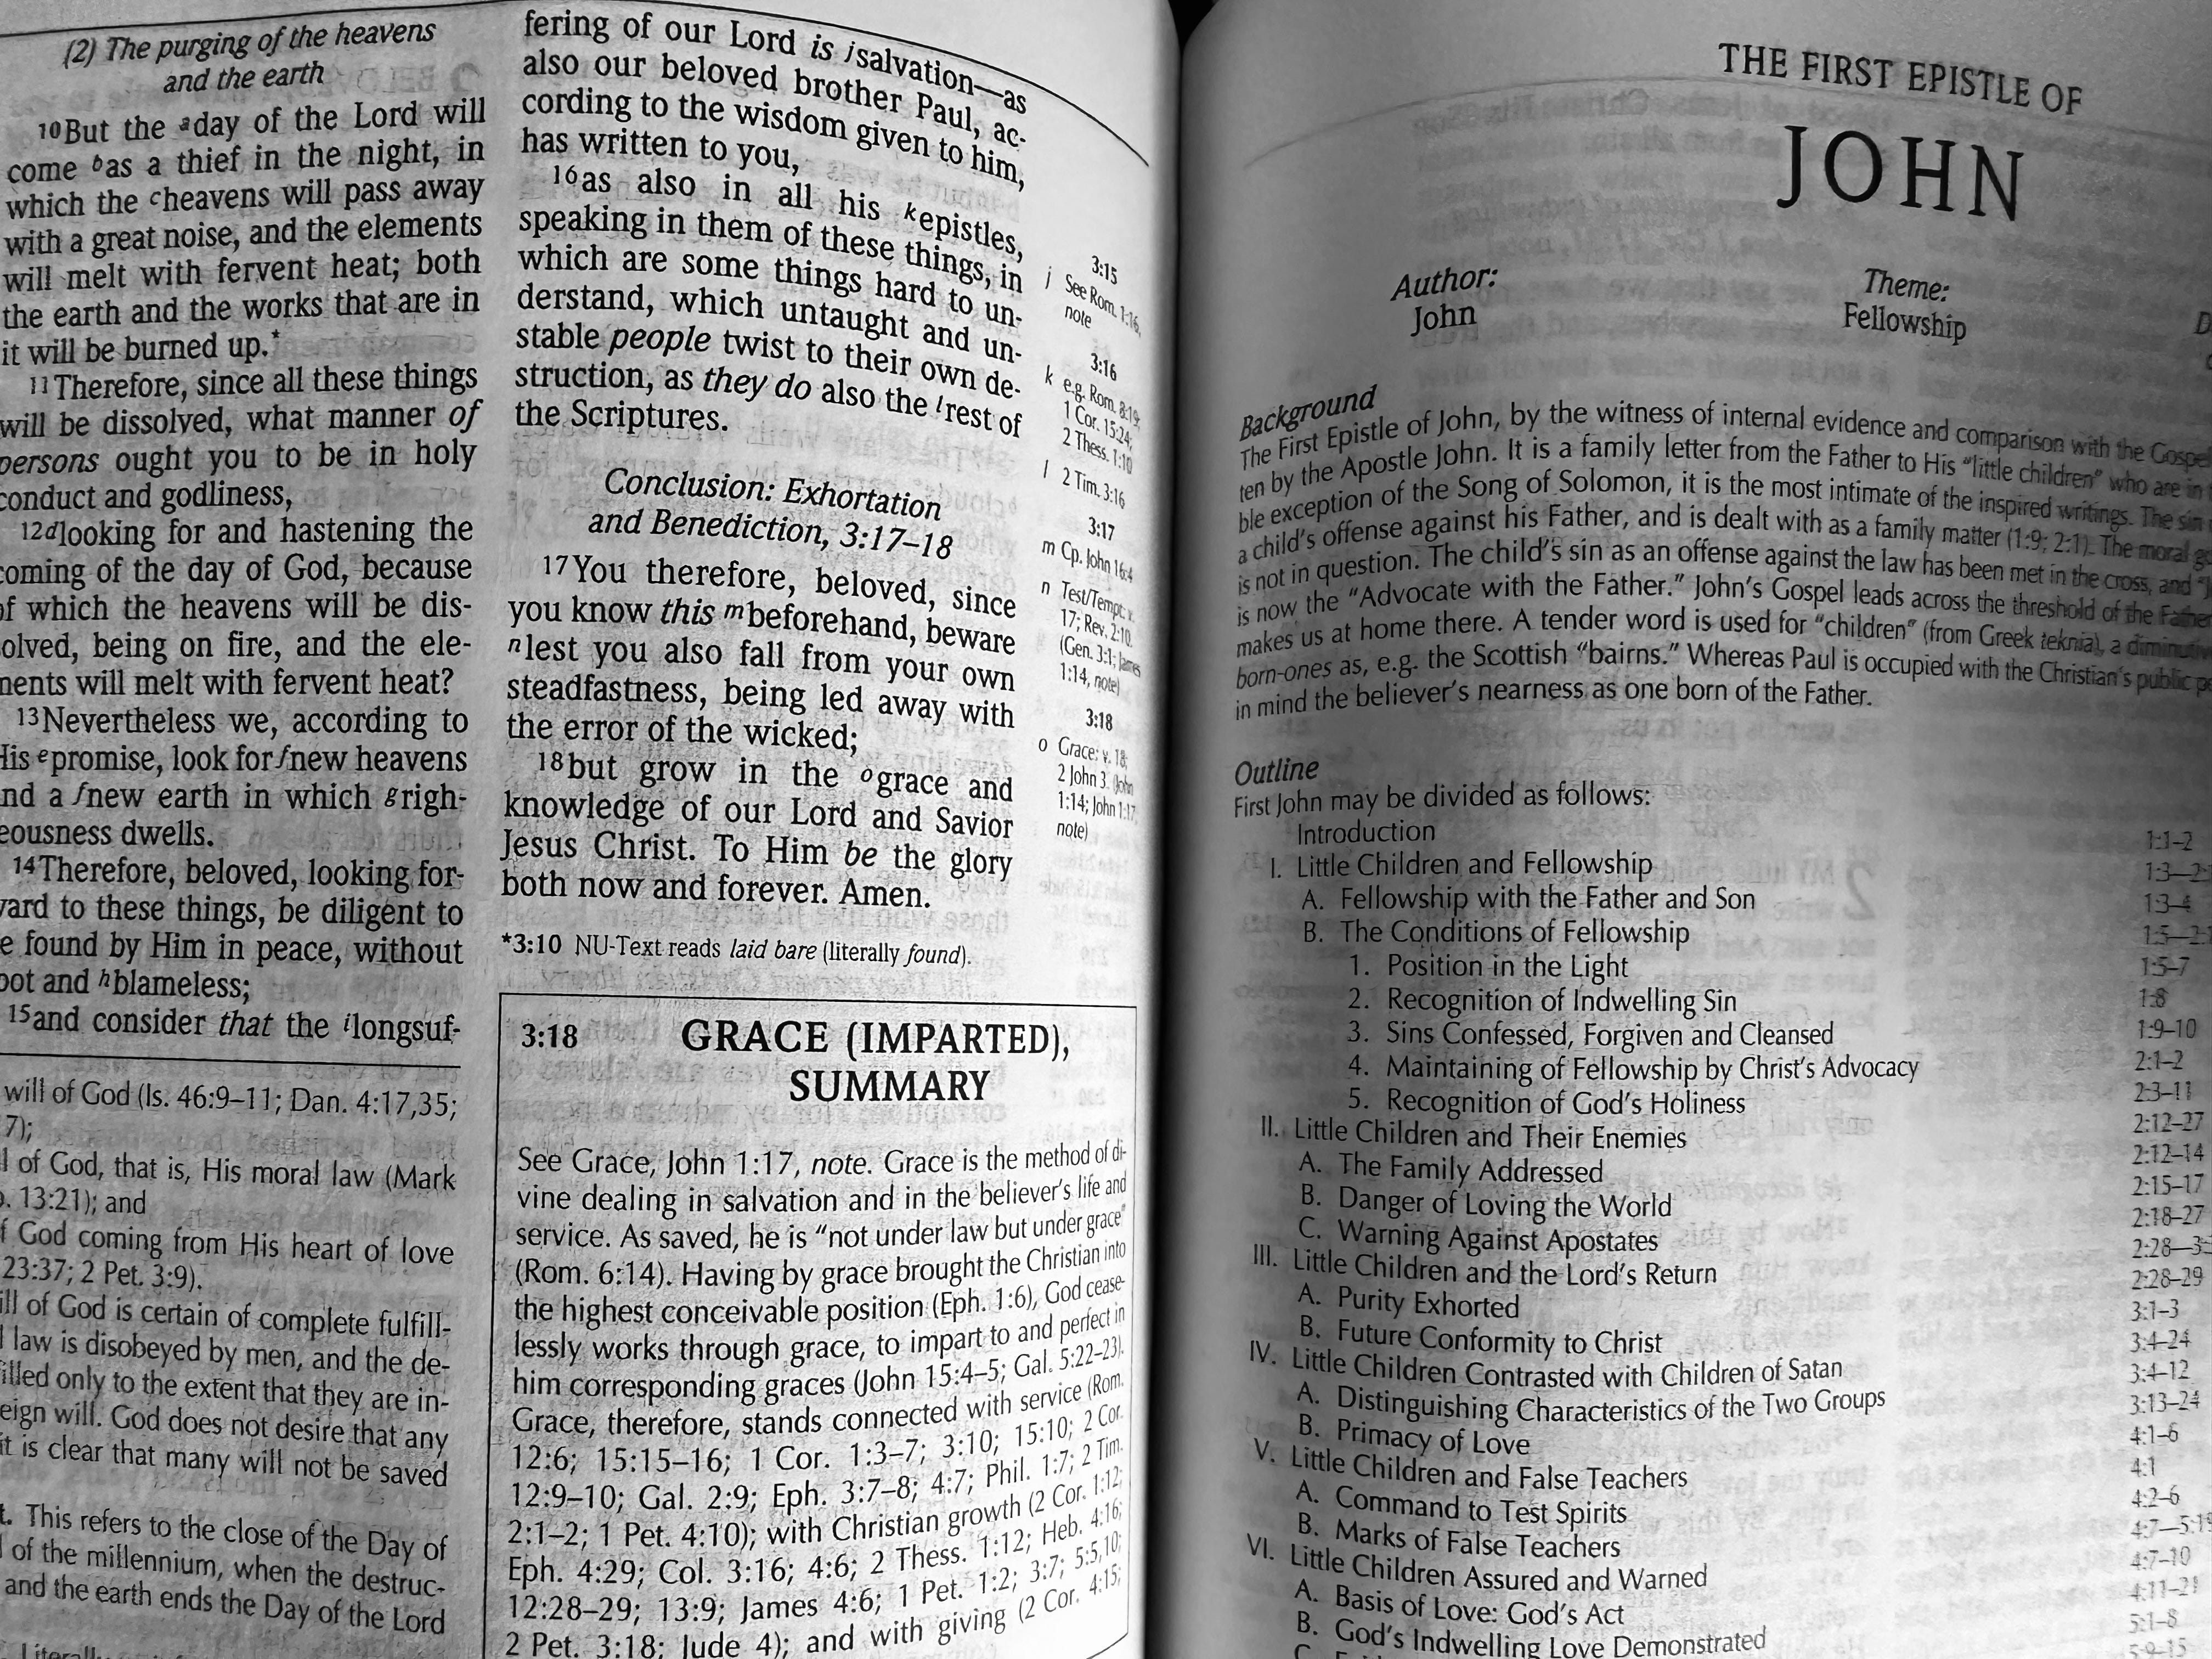 (2) The purging of the heavens
and the earth
10But the aday of the Lord will
come bas a thief in the night, in
which the cheavens will pass away
with a great noise, and the elements
will melt with fervent heat; both
the earth and the works that are in
it will be burned up.*
11Therefore, since all these things
will be dissolved, what manner of
persons ought you to be in holy
conduct and godliness,
12dlooking for and hastening the
coming of the day of God, because
of which the heavens will be dis-
olved, being on fire, and the ele-
ments will melt with fervent heat?
13Nevertheless we, according to
His epromise, look for fnew heavens
nd a fnew earth in which grigh-
eousness dwells.
14Therefore, beloved, looking for-
ward to these things, be diligent to
e found by Him in peace, without
pot and hblameless;
15and consider that the ilongsuf-
will of God (Is. 46:9–11; Dan. 4:17,35;
7);
l of God, that is, His moral law (Mark
13:21); and
f God coming from His heart of love
23:37; 2 Pet. 3:9).
ill of God is certain of complete fulfill-
l law is disobeyed by men, and the de-
illed only to the extent that they are in-
eign will. God does not desire that any
it is clear that many will not be saved
t. This refers to the close of the Day of
of the millennium, when the destruc-
and the earth ends the Day of the Lord
fering of our Lord is jsalvation—as
also our beloved brother Paul, ac-
cording to the wisdom given to him,
has written to you,
16as also in all his kepistles,
speaking in them of these things, in
which are some things hard to un-
derstand, which untaught and un-
stable people twist to their own de-
struction, as they do also the lrest of
the Scriptures.
Conclusion: Exhortation
and Benediction, 3:17–18
17You therefore, beloved, since
you know this mbeforehand, beware
nlest you also fall from your own
steadfastness, being led away with
the error of the wicked;
18but grow in the ograce and
knowledge of our Lord and Savior
Jesus Christ. To Him be the glory
both now and forever. Amen.
*3:10 NU-Text reads laid bare (literally found).
3:15
j See Rom. 1:16,
note
3:16
k e.g. Rom. 8:19;
1 Cor. 15:24;
2 Thess. 1:10
l 2 Tim. 3:16
3:17
m Cp. John 16:4
n Test/Tempt: v.
17; Rev. 2:10.
(Gen. 3:1; James
1:14, note)
3:18
o Grace: v. 18;
2 John 3. (John
1:14; John 1:17,
note)
3:18 GRACE (IMPARTED),
SUMMARY
See Grace, John 1:17, note. Grace is the method of di-
vine dealing in salvation and in the believer's life and
service. As saved, he is “not under law but under grace”
(Rom. 6:14). Having by grace brought the Christian into
the highest conceivable position (Eph. 1:6), God cease-
lessly works through grace, to impart to and perfect in
him corresponding graces (John 15:4–5; Gal. 5:22–23).
Grace, therefore, stands connected with service (Rom.
12:6; 15:15–16; 1 Cor. 1:3–7; 3:10; 15:10; 2 Cor.
12:9–10; Gal. 2:9; Eph. 3:7–8; 4:7; Phil. 1:7; 2 Tim.
2:1–2; 1 Pet. 4:10); with Christian growth (2 Cor. 1:12;
Eph. 4:29; Col. 3:16; 4:6; 2 Thess. 1:12; Heb. 4:16;
12:28–29; 13:9; James 4:6; 1 Pet. 1:2; 3:7; 5:5,10;
2 Pet. 3:18; Jude 4); and with giving (2 Cor. 4:15;
THE FIRST EPISTLE OF
JOHN
Author:
John
Theme:
Fellowship
Background
The First Epistle of John, by the witness of internal evidence and comparison with the Gospel
ten by the Apostle John. It is a family letter from the Father to His “little children” who are in
ble exception of the Song of Solomon, it is the most intimate of the inspired writings. The sin
a child's offense against his Father, and is dealt with as a family matter (1:9; 2:1). The moral
is not in question. The child's sin as an offense against the law has been met in the cross, and
is now the “Advocate with the Father.” John's Gospel leads across the threshold of the Father
makes us at home there. A tender word is used for “children” (from Greek teknia), a diminutive
born-ones as, e.g. the Scottish “bairns.” Whereas Paul is occupied with the Christian's public
in mind the believer's nearness as one born of the Father.
Outline
First John may be divided as follows:
Introduction 1:1–2
I. Little Children and Fellowship 1:3—2:
A. Fellowship with the Father and Son 1:3–4
B. The Conditions of Fellowship 1:5—2:
1. Position in the Light 1:5–7
2. Recognition of Indwelling Sin 1:8
3. Sins Confessed, Forgiven and Cleansed 1:9–10
4. Maintaining of Fellowship by Christ's Advocacy 2:1–2
5. Recognition of God's Holiness 2:3–11
II. Little Children and Their Enemies 2:12–27
A. The Family Addressed 2:12–14
B. Danger of Loving the World 2:15–17
C. Warning Against Apostates 2:18–27
III. Little Children and the Lord's Return 2:28—3:
A. Purity Exhorted 2:28–29
B. Future Conformity to Christ 3:1–3
IV. Little Children Contrasted with Children of Satan 3:4–24
A. Distinguishing Characteristics of the Two Groups 3:4–12
B. Primacy of Love 3:13–24
V. Little Children and False Teachers 4:1–6
A. Command to Test Spirits 4:1
B. Marks of False Teachers 4:2–6
VI. Little Children Assured and Warned 4:7—5:
A. Basis of Love: God's Act 4:7–10
B. God's Indwelling Love Demonstrated 4:11–21
5:1–8